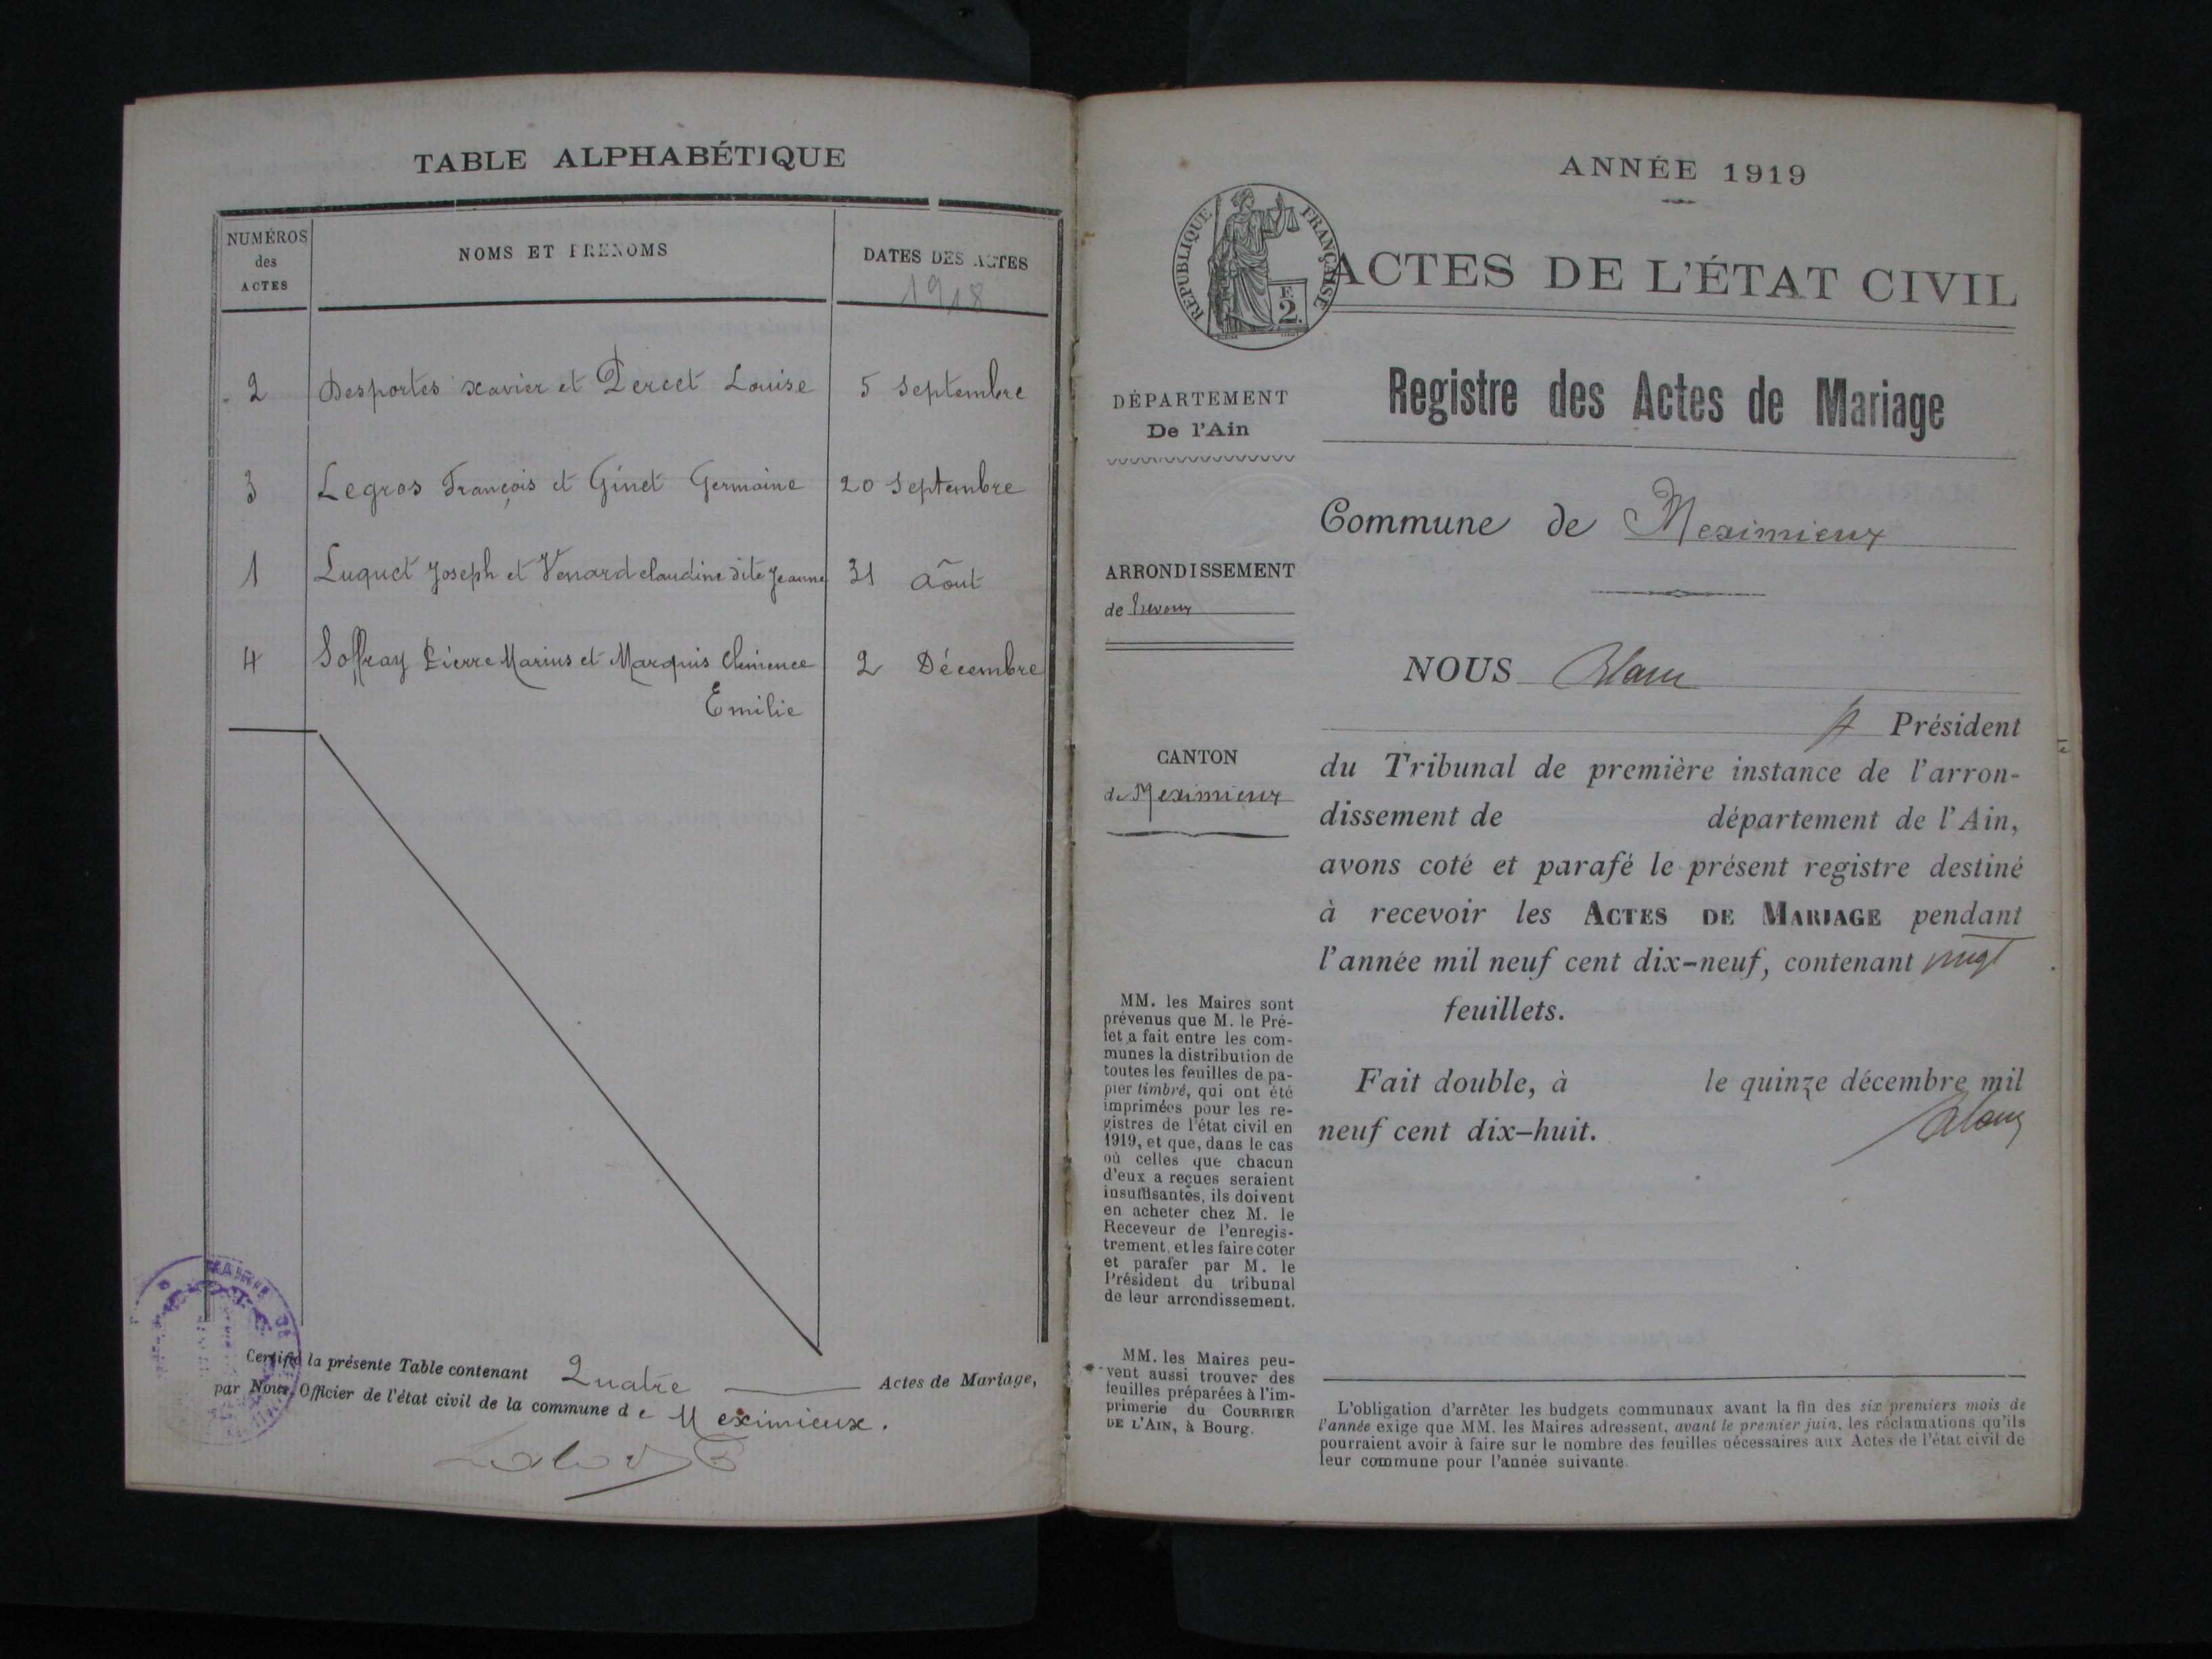 TABLE ALPHABÉTIQUE
NUMÉROS
des
ACTES
NOMS ET PRÉNOMS
DATES DES ACTES
1918
2 Desportes Xavier et Percet Louise 5 Septembre
3 Legros François et Ginet Germaine 20 Septembre
1 Luquet Joseph et Venard Claudine dite Jeanne 31 Août
4 Soffray Pierre Marius et Marquis Clémence 2 Décembre
Emilie
Certifié la présente Table contenant Quatre Actes de Mariage,
par Nous, Officier de l'état civil de la commune de Meximieux.
ANNÉE 1919
RÉPUBLIQUE FRANÇAISE
F.
2.
ACTES DE L'ÉTAT CIVIL
Registre des Actes de Mariage
DÉPARTEMENT
De l'Ain
Commune de Meximieux
ARRONDISSEMENT
de Trevoux
CANTON
de Meximieux
NOUS Blanc
Président
du Tribunal de première instance de l'arron-
dissement de département de l'Ain,
avons coté et parafé le présent registre destiné
à recevoir les ACTES DE MARIAGE pendant
l'année mil neuf cent dix-neuf, contenant vingt
feuillets.
Fait double, à le quinze décembre mil
neuf cent dix-huit.
Blanc
MM. les Maires sont
prévenus que M. le Pré-
fet a fait entre les com-
munes la distribution de
toutes les feuilles de pa-
pier timbré, qui ont été
imprimées pour les re-
gistres de l'état civil en
1919, et que, dans le cas
où celles que chacun
d'eux a reçues seraient
insuffisantes, ils doivent
en acheter chez M. le
Receveur de l'enregis-
trement, et les faire coter
et parafer par M. le
Président du tribunal
de leur arrondissement.
MM. les Maires peu-
vent aussi trouver des
feuilles préparées à l'im-
primerie du COURRIER
DE L'AIN, à Bourg.
L'obligation d'arrêter les budgets communaux avant la fin des six premiers mois de
l'année exige que MM. les Maires adressent, avant le premier juin, les réclamations qu'ils
pourraient avoir à faire sur le nombre des feuilles nécessaires aux Actes de l'état civil de
leur commune pour l'année suivante.